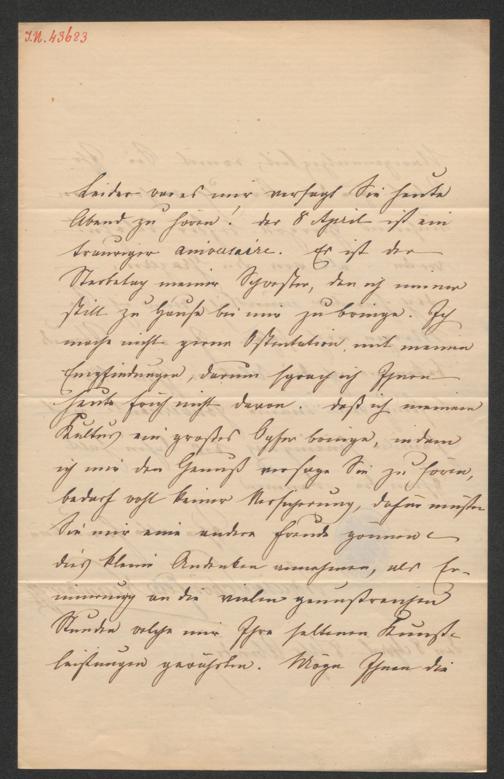 I.N. 43623
Leider war es mir versagt Sie heute
Abend zu hören! der 8 April ist ein
trauriger aniversaire. Es ist der
Sterbetag meiner Schwester, den ich immer
still zu Hause bei mir zu bringe. Ich
mache nicht gerne Ostentation mit meinen
Empfindungen, darum sprach ich Ihnen
heute früh nicht davon. daß ich meinem
Kultus ein großes Opfer bringe, indem
ich mir den Genuß versage Sie zu hören,
bedarf wohl keiner Versicherung, dafür müssen
Sie mir eine andere Freude gönnen
dies kleine Andenken annehmen, als Er-
innerung an die vielen genußreichen
Stunden welche mir Ihre seltenen Kunst-
leistungen gewährten. Möge Ihnen die